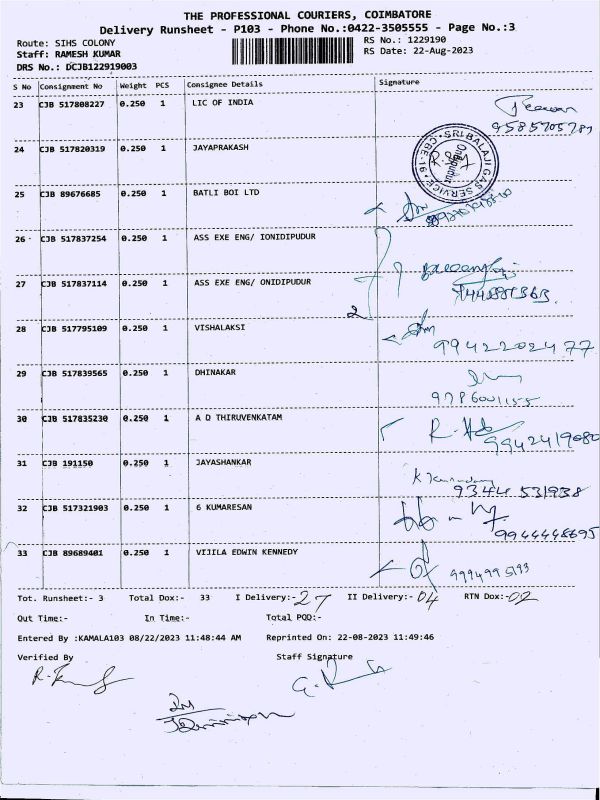 THE PROFESSIONAL COURIERS, COIMBATORE
Delivery Runsheet - P103 - Phone No.:0422-3505555 - Page No.:3
Route: SIHS COLONY RS No.: 1229190
Staff: RAMESH KUMAR RS Date: 22-Aug-2023
DRS No.: DCJB122919003
S No Consignment No Weight PCS Consignee Details Signature
23 CJB 517808227 0.250 1 LIC OF INDIA
9585705781
24 CJB 517820319 0.250 1 JAYAPRAKASH
SRI BALAJI GAS SERVICE
25 CJB 89676685 0.250 1 BATLI BOI LTD
26 CJB 517837254 0.250 1 ASS EXE ENG/ IONIDIPUDUR
27 CJB 517837114 0.250 1 ASS EXE ENG/ ONIDIPUDUR
2
28 CJB 517795109 0.250 1 VISHALAKSI
9942202477
29 CJB 517839565 0.250 1 DHINAKAR
9786001155
30 CJB 517835230 0.250 1 A D THIRUVENKATAM
9942419080
31 CJB 191150 0.250 1 JAYASHANKAR
9344 531938
32 CJB 517321903 0.250 1 G KUMARESAN
9944448695
33 CJB 89689401 0.250 1 VIJILA EDWIN KENNEDY
9994995193
Tot. Runsheet:- 3 Total Dox:- 33 I Delivery:- 27 II Delivery:- 04 RTN Dox:- 02
Out Time:- In Time:- Total POD:-
Entered By :KAMALA103 08/22/2023 11:48:44 AM Reprinted On: 22-08-2023 11:49:46
Verified By Staff Signature